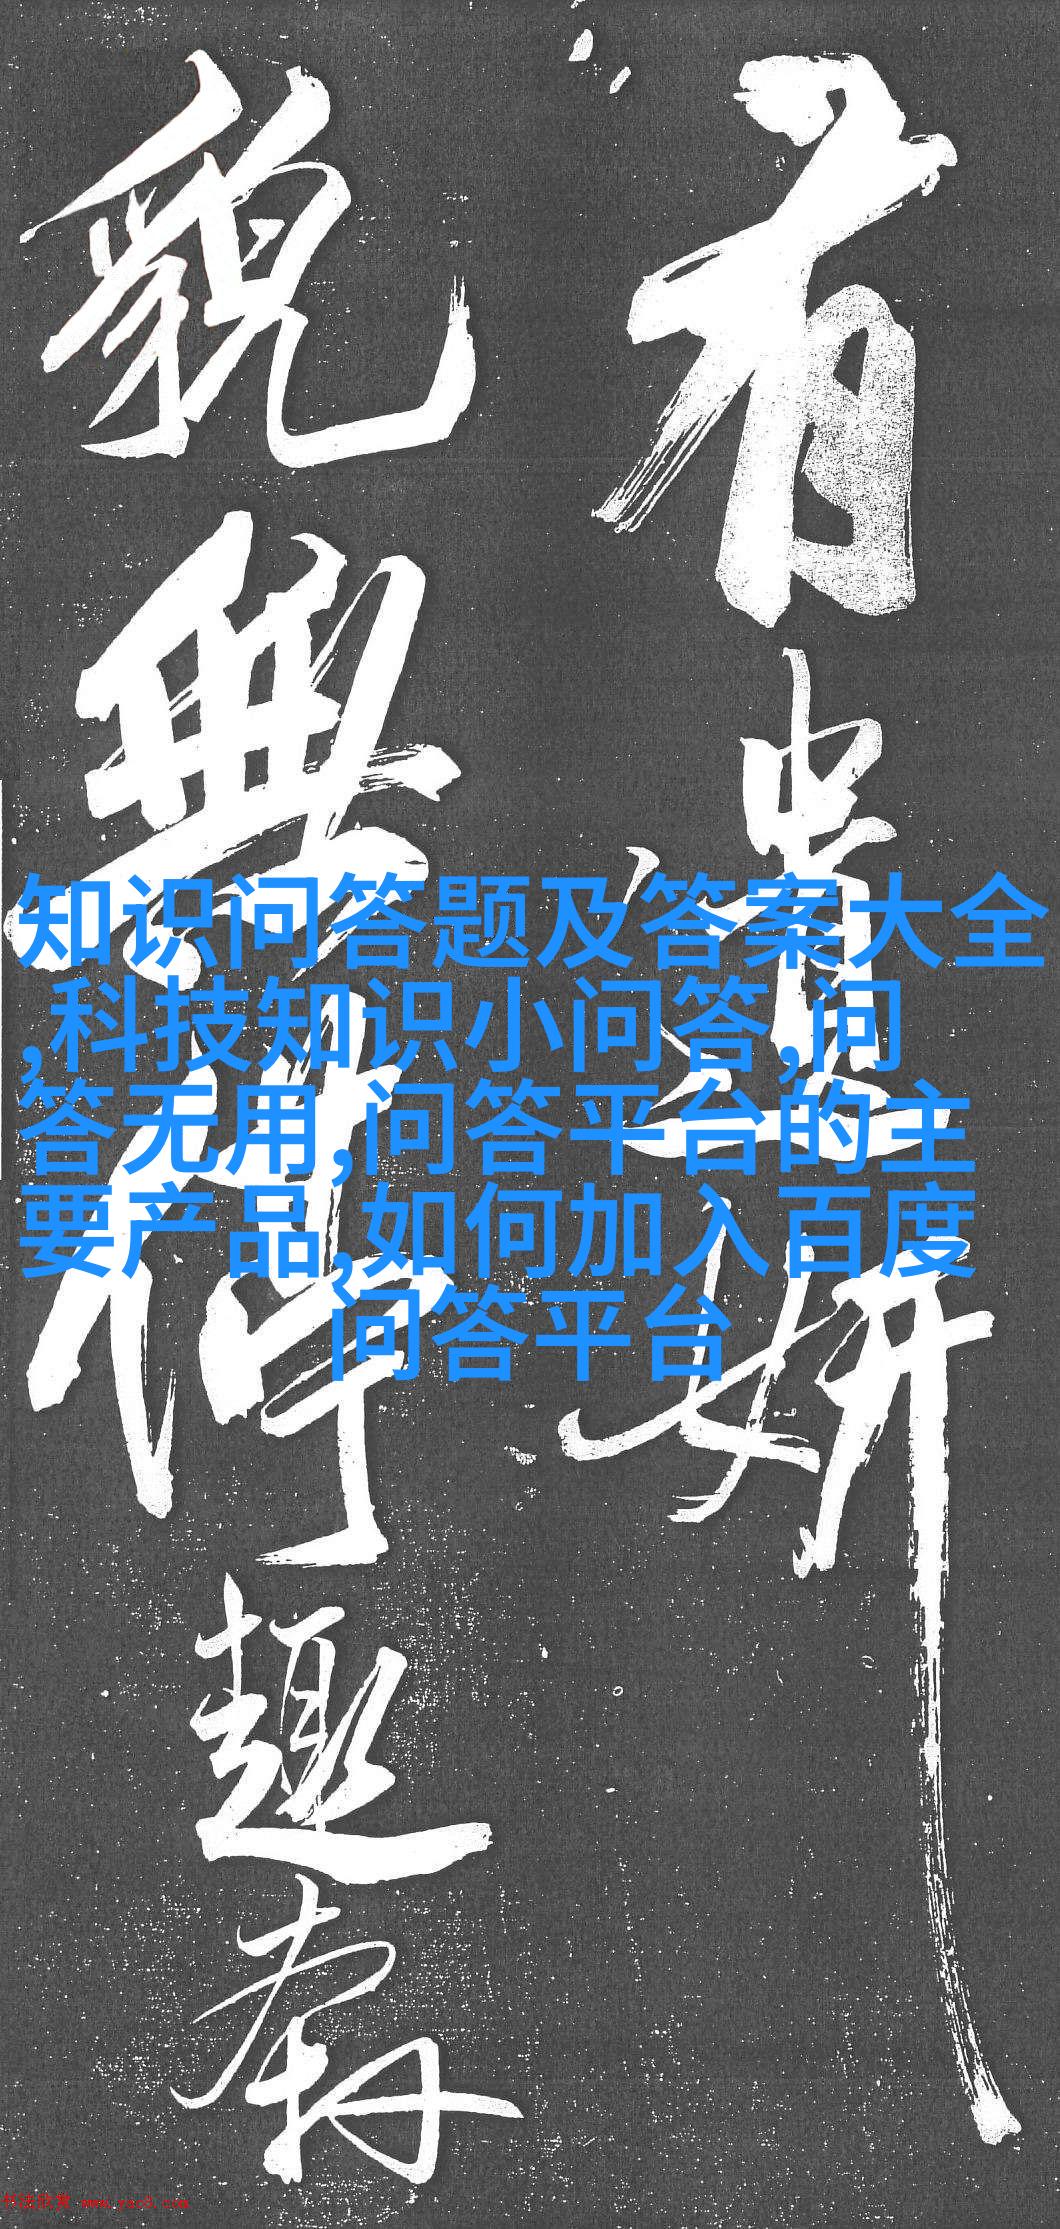 有
遺
妍
貌
無
停
趣
知识问答题及答案大全
,科技知识小问答,问
答无用,问答平台的主
要产品,如何加入百度
问答平台